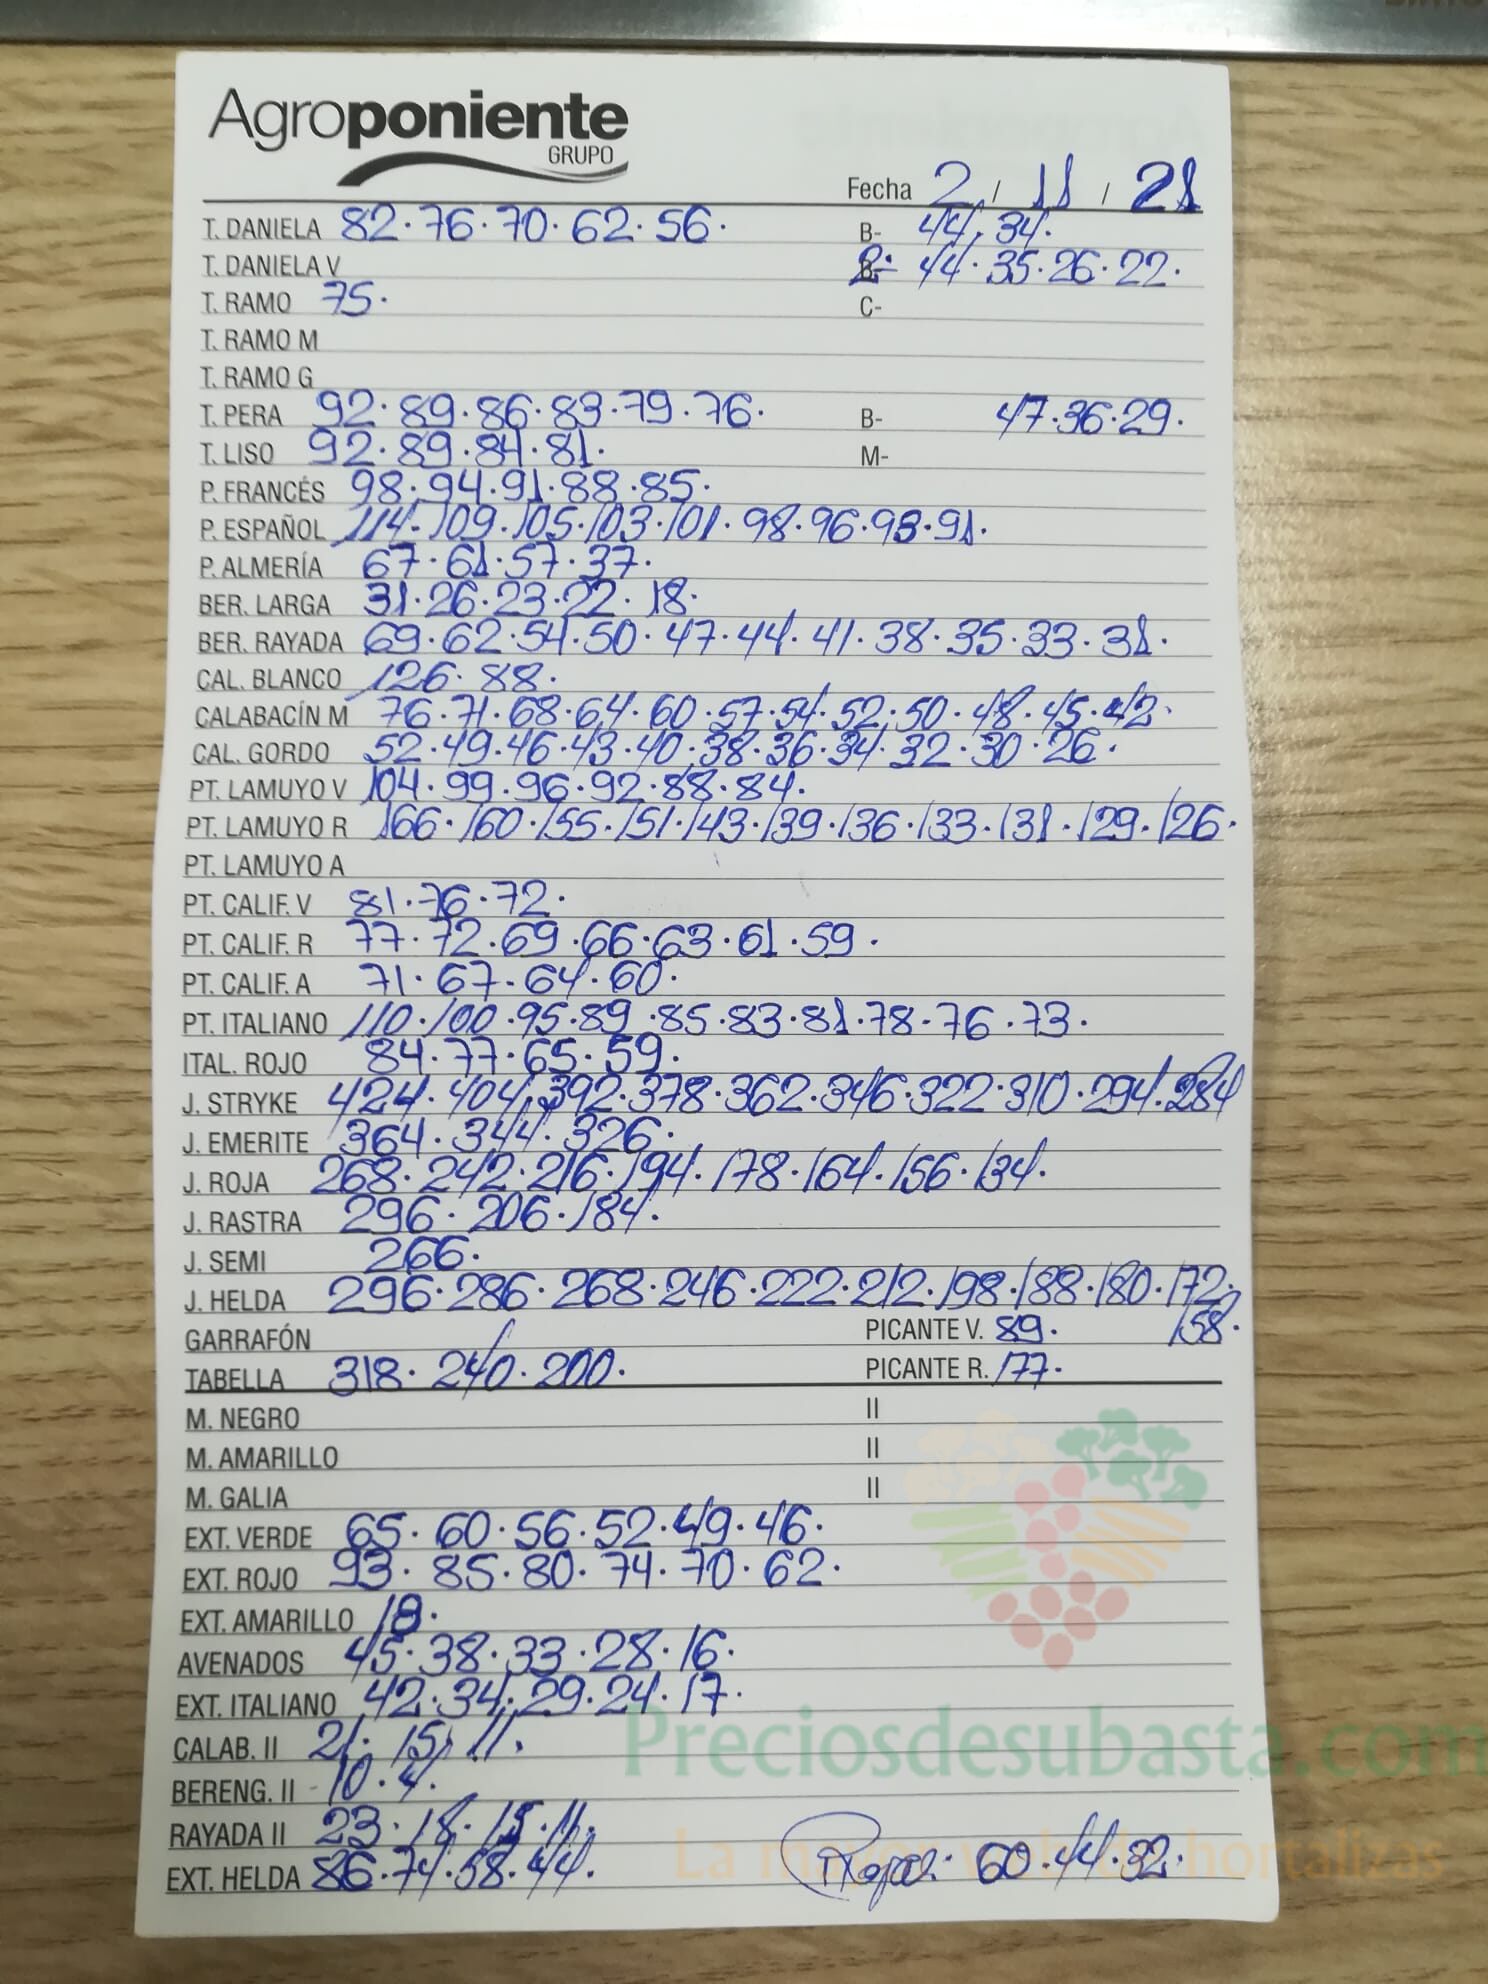 Agroponiente
GRUPO
Fecha 2 / 11 / 21
T. DANIELA 82. 76. 70. 62. 56. B- 44. 34.
T. DANIELA V 2- 44. 35. 26. 22.
T. RAMO 75. C-
T. RAMO M
T. RAMO G
T. PERA 92. 89. 86. 83. 79. 76. B- 47. 36. 29.
T. LISO 92. 89. 84. 81. M-
P. FRANCÉS 98. 94. 91. 88. 85.
P. ESPAÑOL 114. 109. 105. 103. 101. 98. 96. 93. 91.
P. ALMERÍA 67. 61. 57. 37.
BER. LARGA 31. 26. 23. 22. 18.
BER. RAYADA 69. 62. 54. 50. 47. 44. 41. 38. 35. 33. 31.
CAL. BLANCO 126. 88.
CALABACÍN M 76. 71. 68. 64. 60. 57. 54. 52. 50. 48. 45. 42.
CAL. GORDO 52. 49. 46. 43. 40. 38. 36. 34. 32. 30. 26.
PT. LAMUYO V 104. 99. 96. 92. 88. 84.
PT. LAMUYO R 166. 160. 155. 151. 143. 139. 136. 133. 131. 129. 126.
PT. LAMUYO A
PT. CALIF. V 81. 76. 72.
PT. CALIF. R 77. 72. 69. 66. 63. 61. 59.
PT. CALIF. A 71. 67. 64. 60.
PT. ITALIANO 110. 100. 95. 89. 85. 83. 81. 78. 76. 73.
ITAL. ROJO 84. 77. 65. 59.
J. STRYKE 424. 404. 392. 378. 362. 346. 322. 310. 294. 284
J. EMERITE 364. 344. 326.
J. ROJA 268. 242. 216. 194. 178. 164. 156. 134.
J. RASTRA 296. 206. 184.
J. SEMI 266.
J. HELDA 296. 286. 268. 246. 222. 212. 198. 188. 180. 172.
GARRAFÓN PICANTE V. 89. 158.
TABELLA 318. 240. 200. PICANTE R. 177.
M. NEGRO II
M. AMARILLO II
M. GALIA II
EXT. VERDE 65. 60. 56. 52. 49. 46.
EXT. ROJO 93. 85. 80. 74. 70. 62.
EXT. AMARILLO 18.
AVENADOS 45. 38. 33. 28. 16.
EXT. ITALIANO 42. 34. 29. 24. 17.
CALAB. II 21. 15. 11.
Preciosdesubasta.com
BERENG. II 10. 4.
RAYADA II 23. 18. 15. 11.
EXT. HELDA 86. 74. 58. 44. 60. 44. 32.
La mayor web de hortalizas